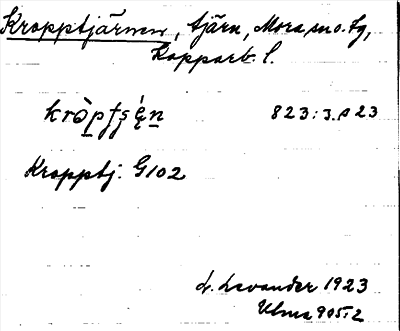 Kropptjärnen, tjärn, Mora sn o. tg,
Kopparb. l.
823:3.A 23
Kropptj. G102
L. Levander 1923
Ulma 905:2